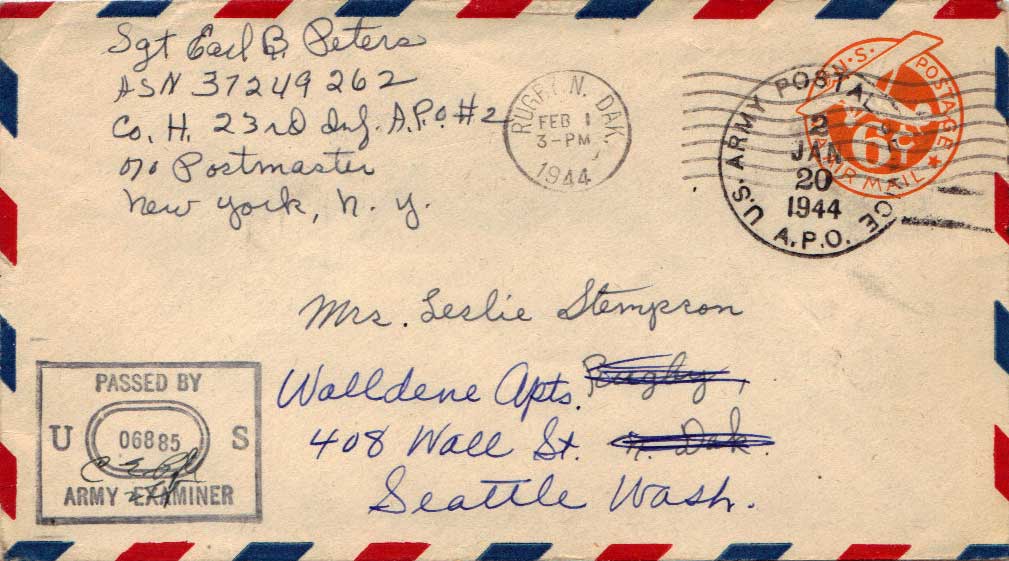 Sgt Earl B. Peters
ASN 37249262
Co. H. 23rd Inf. A.P.O. #2
c/o Postmaster
New York, N. Y.
RUGBY N. DAK.
FEB 1
3-PM
1944
U.S. ARMY POSTAL SERVICE
2
JAN
20
1944
A.P.O.
U.S. POSTAGE
6¢
AIR MAIL
Mrs. Leslie Stempson
Walldene Apts. Rugby,
408 Wall St. N. Dak.
Seattle Wash.
PASSED BY
U 06885 S
ARMY EXAMINER